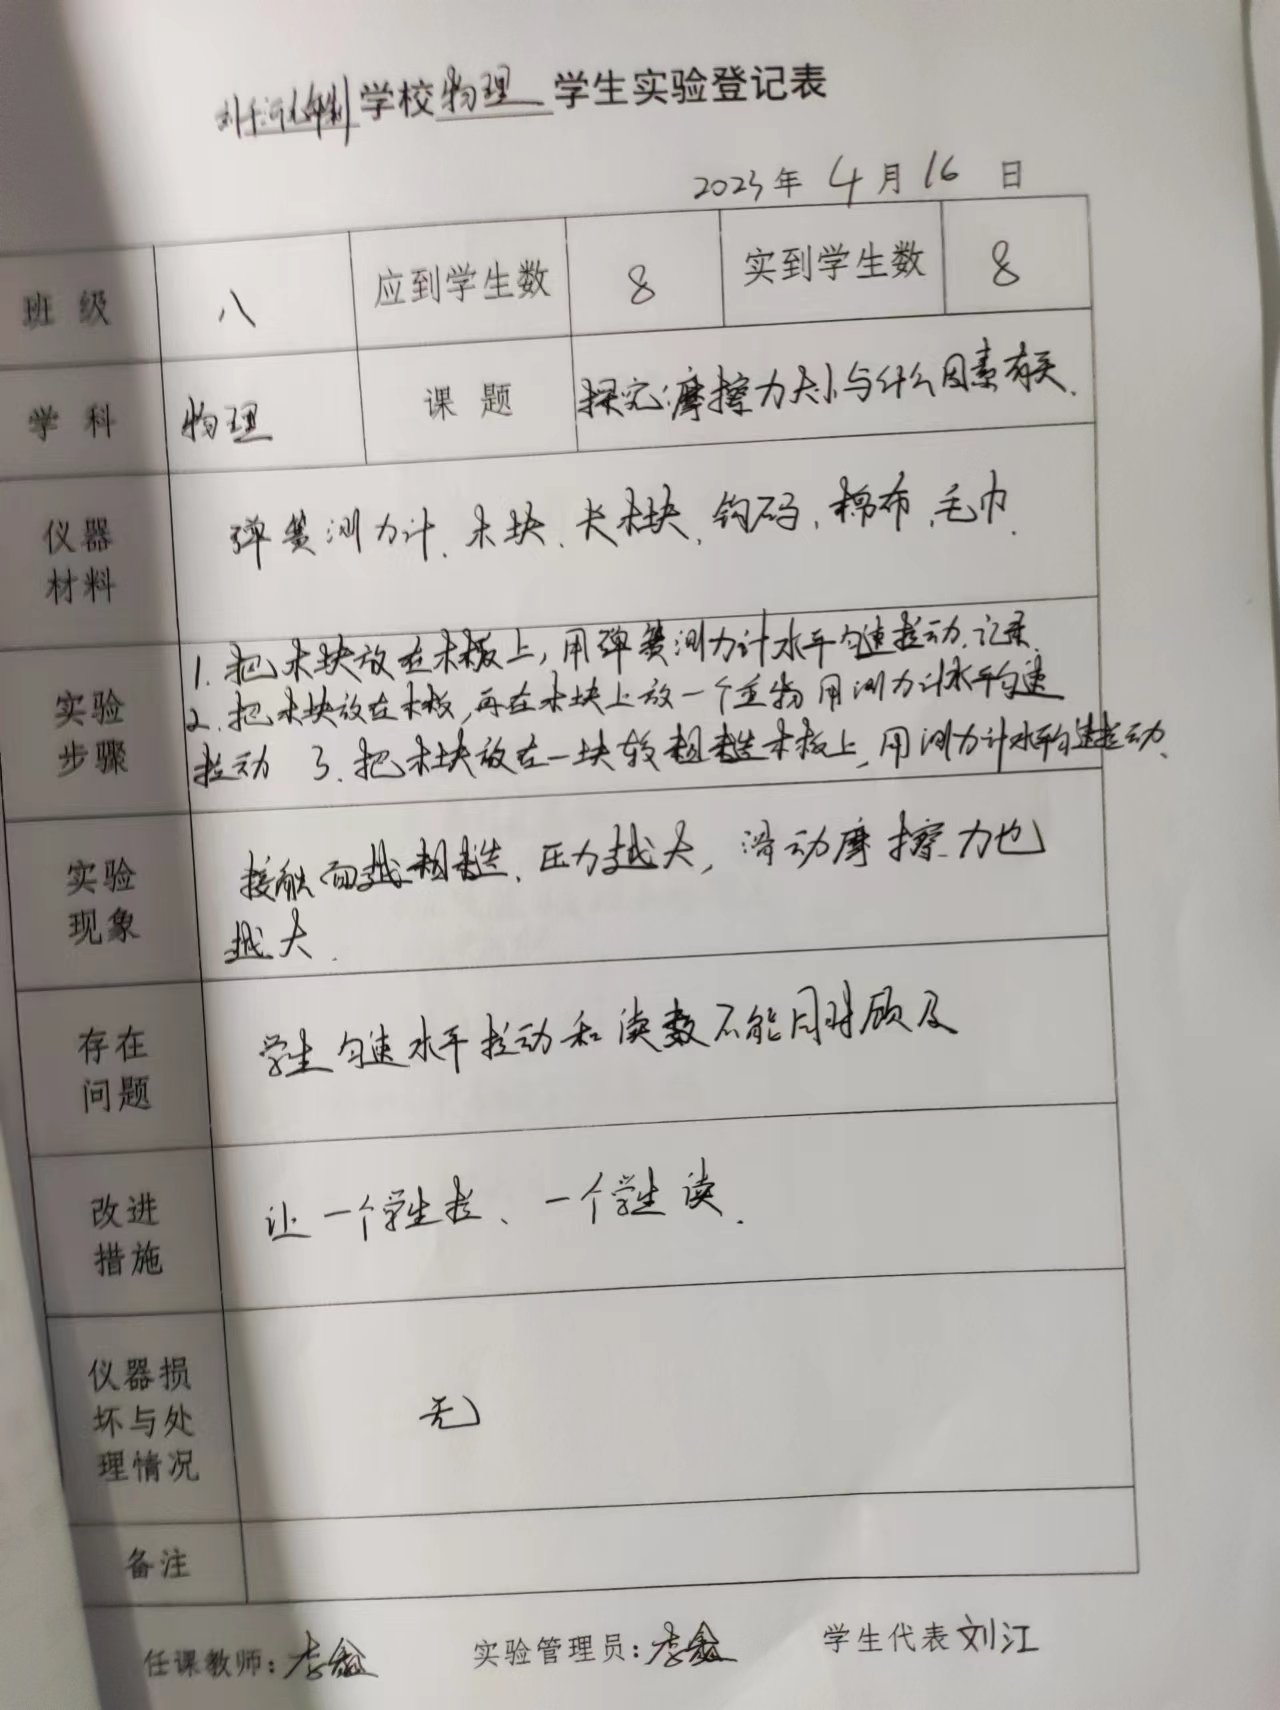 学校物理 学生实验登记表
2023年 4月16 日
班 级 八 应到学生数 8 实到学生数 8
学 科 物理 课 题 探究摩擦力大小与什么因素有关.
仪器
材料
弹簧测力计、木块、长木块、钩码、棉布、毛巾.
实验
步骤
1. 把木块放在木板上,用弹簧测力计水平匀速拉动.记录.
2. 把木块放在木板,再在木块上放一个重物 用测力计水平匀速
拉动 3. 把木块放在一块较粗糙木板上,用测力计水平匀速拉动.
实验
现象
接触面越粗糙、压力越大,滑动摩擦力也
越大.
存在
问题
学生匀速水平拉动和读数不能同时顾及
改进
措施
让一个学生拉、一个学生读.
仪器损
坏与处
理情况
无
备注
任课教师:李鑫 实验管理员:李鑫 学生代表 刘江